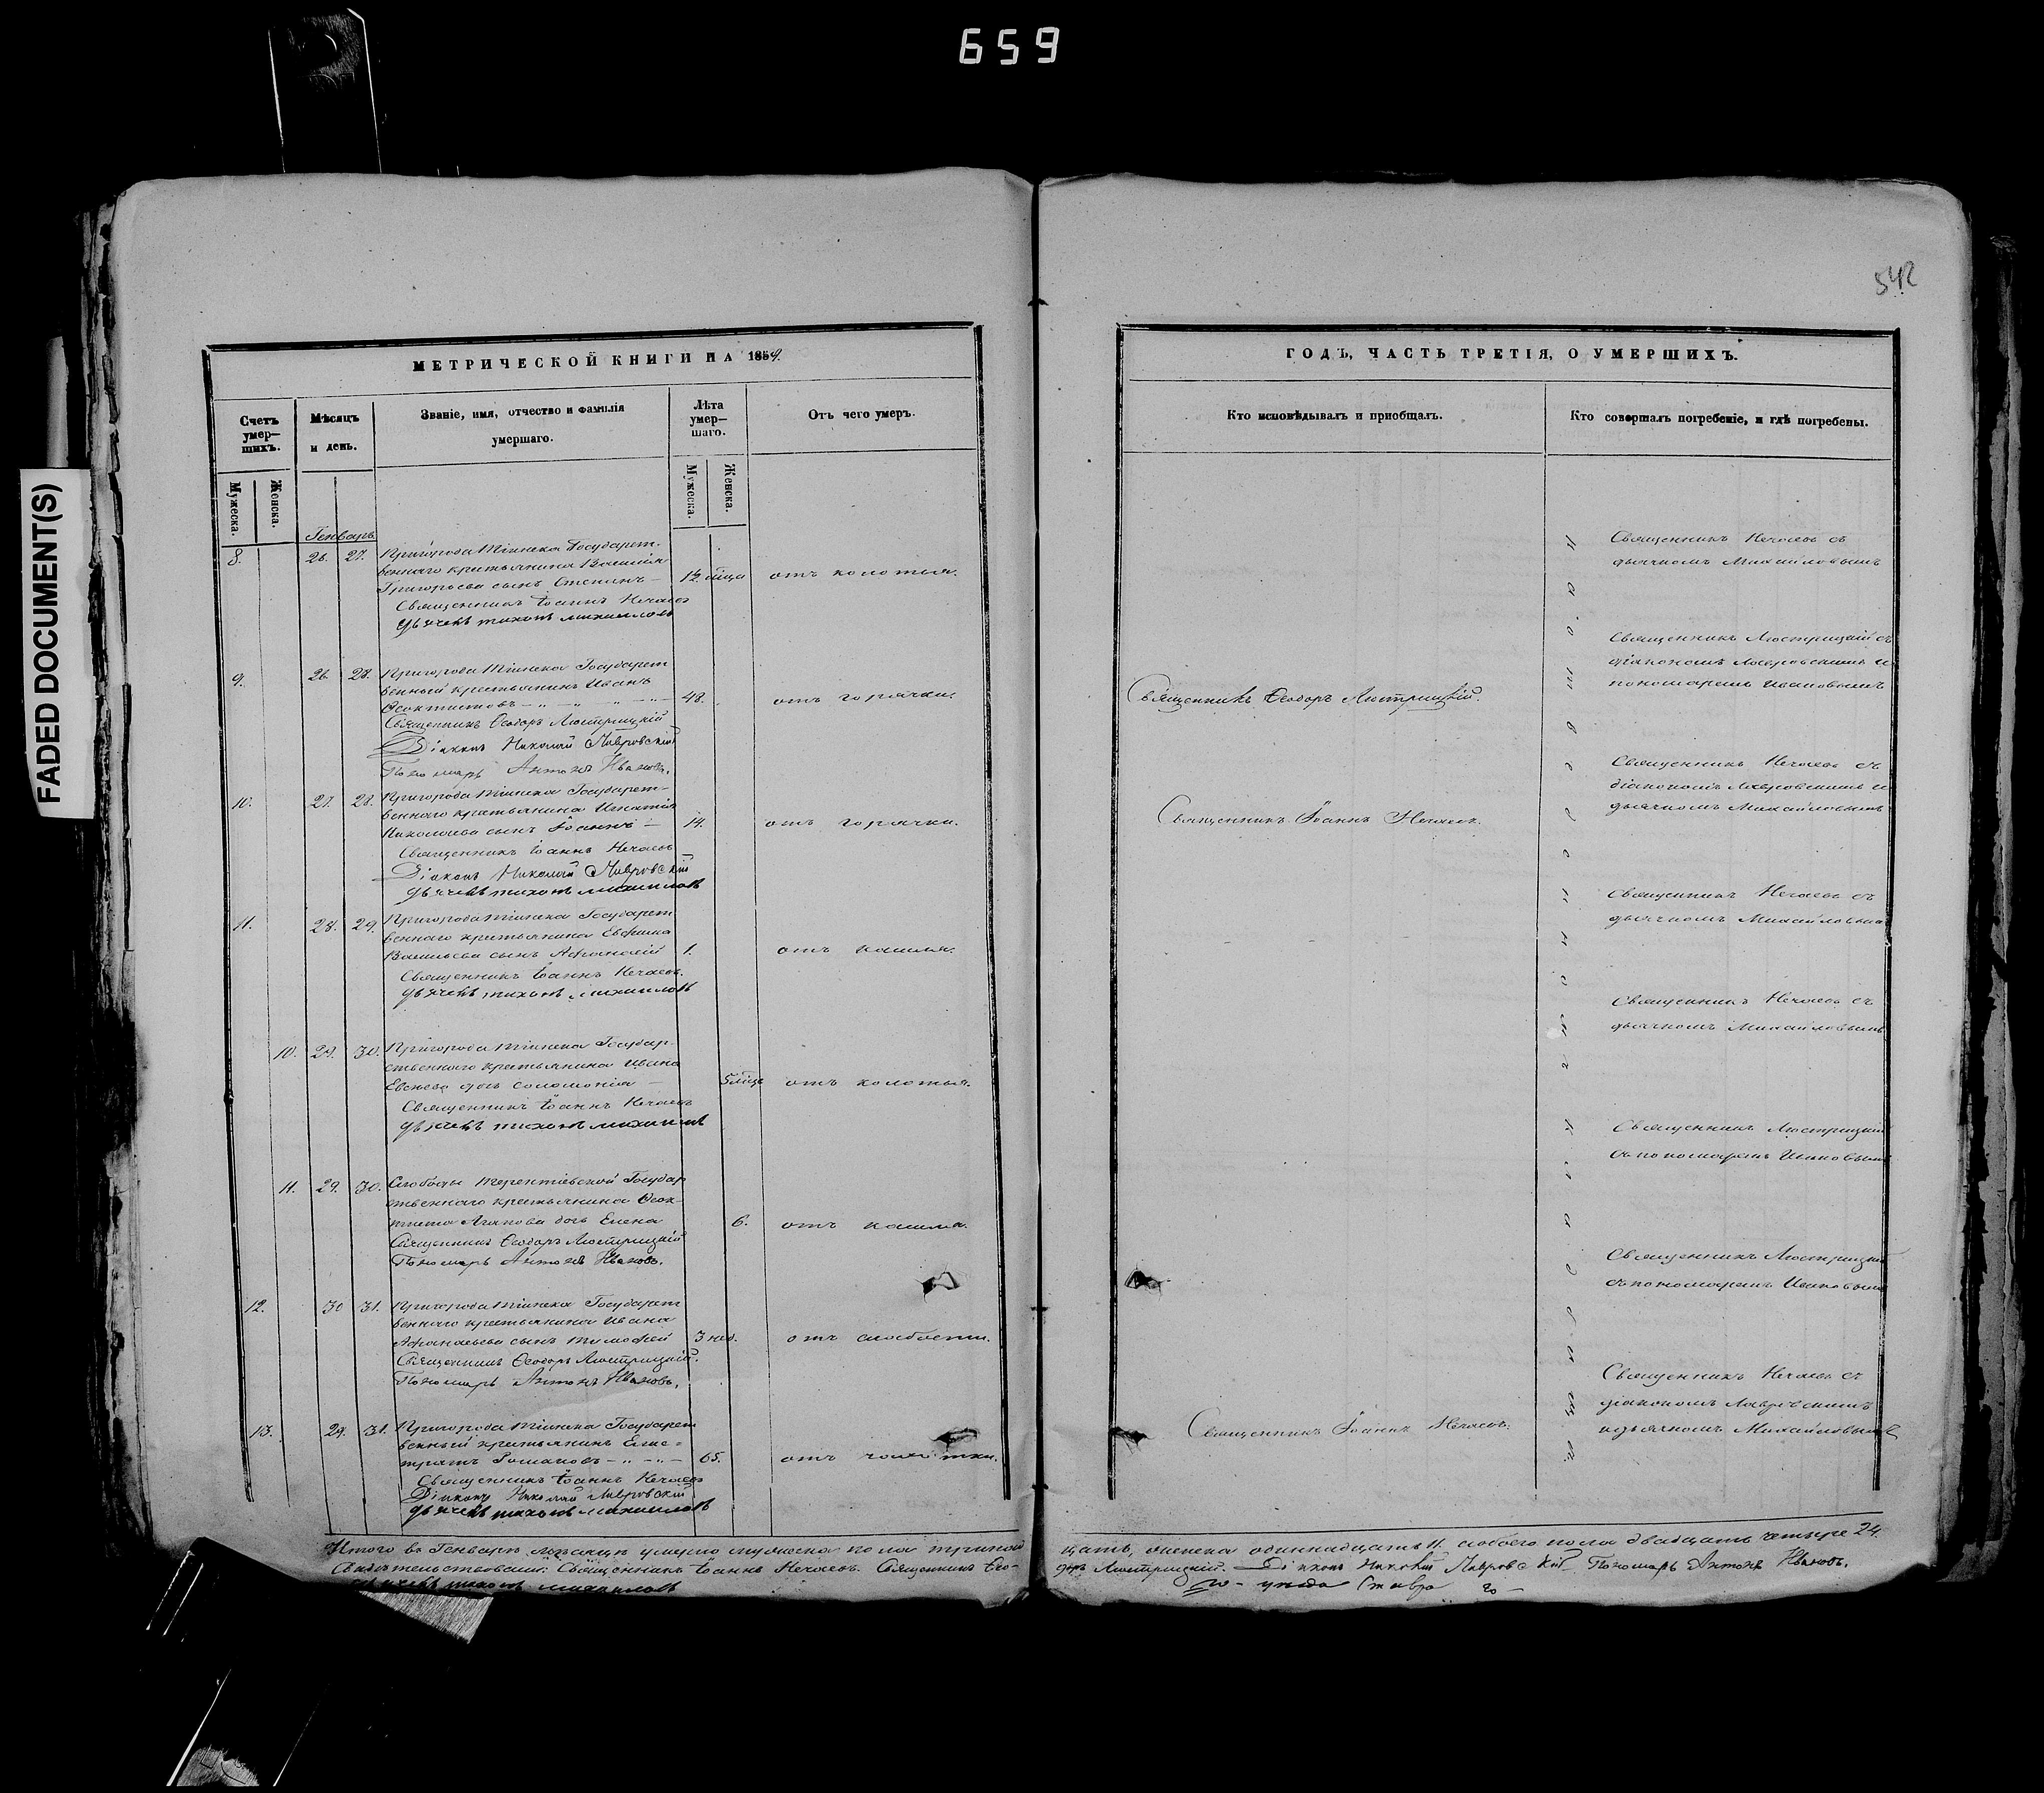 659
FADED DOCUMENT(S)
542
МЕТРИЧЕСКОЙ КНИГИ НА 1859.
Счетъ умер—шихъ.
Мѣсяцъ и день.
Званіе, имя, отчество и фамилія умершаго.
Лѣта умер—шаго.
Отъ чего умеръ.
Мужеска.
Женска.
Мужеска.
Женска.
Генварь
8. 26. 27. Пригорода Тіинска Государст-
веннаго крестьянина Василія
Григорьева сынъ Стефанъ — 12. мца отъ колотья.
Священникъ Іоаннъ Нечаевъ
дьячекъ тихонъ михаиловъ
9. 26. 28. Пригорода Тіинска Государст
венный крестьянинъ Иванъ
Ѳеоктистовъ 48. отъ горячки
Священникъ Ѳеодоръ Люстрицкій
Діаконъ Николай Лавровскій
Пономарь Антонъ Ивановъ.
10. 27. 28. Пригорода Тіинска Государст-
веннаго крестьянина Игнатія
Николаева сынъ Іоаннъ — 14. отъ горячки.
Священникъ Іоаннъ Нечаевъ
Діаконъ Николай Лавровскій
дьячекъ тихонъ михаиловъ
11. 28. 29. Пригорода Тіинска Государст
веннаго крестьянина Евфима
Васильева сынъ Афанасій 1. отъ кашля.
Священникъ Іоаннъ Нечаевъ.
дьячекъ тихонъ михаиловъ
10. 29. 30. Пригорода Тіинска Государ-
ственнаго крестьянина Ивана
Евсѣева дочь Соломонія — 5 мцъ отъ колотья.
Священникъ Іоаннъ Нечаевъ
дьячекъ тихонъ михаиловъ
11. 29. 30. Слободы Терентіевской Государ
ственнаго крестьянина Ѳеок-
тиста Агапова дочь Елена 6. отъ кашля.
Священникъ Ѳеодоръ Люстрицкій
Пономарь Антонъ Ивановъ.
12. 30 31. Пригорода Тіинска Государст
веннаго крестьянина Ивана
Афанасьева сынъ Тимофей 3 нед. отъ слабости.
Священникъ Ѳеодоръ Люстрицкій.
Пономарь Антонъ Ивановъ.
13. 29. 31. Пригорода Тіинска Государст
венный крестьянинъ
Романовъ 65. отъ чахотки.
Священникъ Іоаннъ Нечаевъ
Діаконъ Николай Лавровскій
дьячекъ тихонъ михаиловъ
Итого въ Генварѣ мѣсяцѣ умерло мужеска пола тринад
Свидѣтельствовали: Священникъ Іоаннъ Нечаевъ. Священникъ Ѳео-
дьячекъ тихонъ михаиловъ
ГОДЪ, ЧАСТЬ ТРЕТІЯ, О УМЕРШИХЪ.
Кто исповѣдывалъ и пріобщалъ.
Кто совершалъ погребеніе, и гдѣ погребены.
Священникъ Нечаевъ съ
дьячкомъ Михайловымъ
Священникъ Люстрицкій съ
діакономъ Лавровскимъ и
пономаремъ Ивановымъ
Священникъ Ѳеодоръ Люстрицкій.
Священникъ Нечаевъ съ
діакономъ Лавровскимъ и
дьячкомъ Михайловымъ
Священникъ Іоаннъ Нечаевъ.
Священникъ Нечаевъ съ
дьячкомъ Михайловымъ
Священникъ Нечаевъ съ
дьячкомъ Михайловымъ
Священникъ Люстрицкій
съ пономаремъ Ивановымъ
Священникъ Люстрицкій
съ пономаремъ Ивановымъ
Священникъ Нечаевъ съ
діакономъ Лавровскимъ
и дьячкомъ Михайловымъ
Священникъ Іоаннъ Нечаевъ.
цать, женска одиннадцать 11. обоего пола двадцать четыре 24.
доръ Люстрицкій. Діаконъ Николай Лавровскій Пономарь Антонъ Ивановъ.